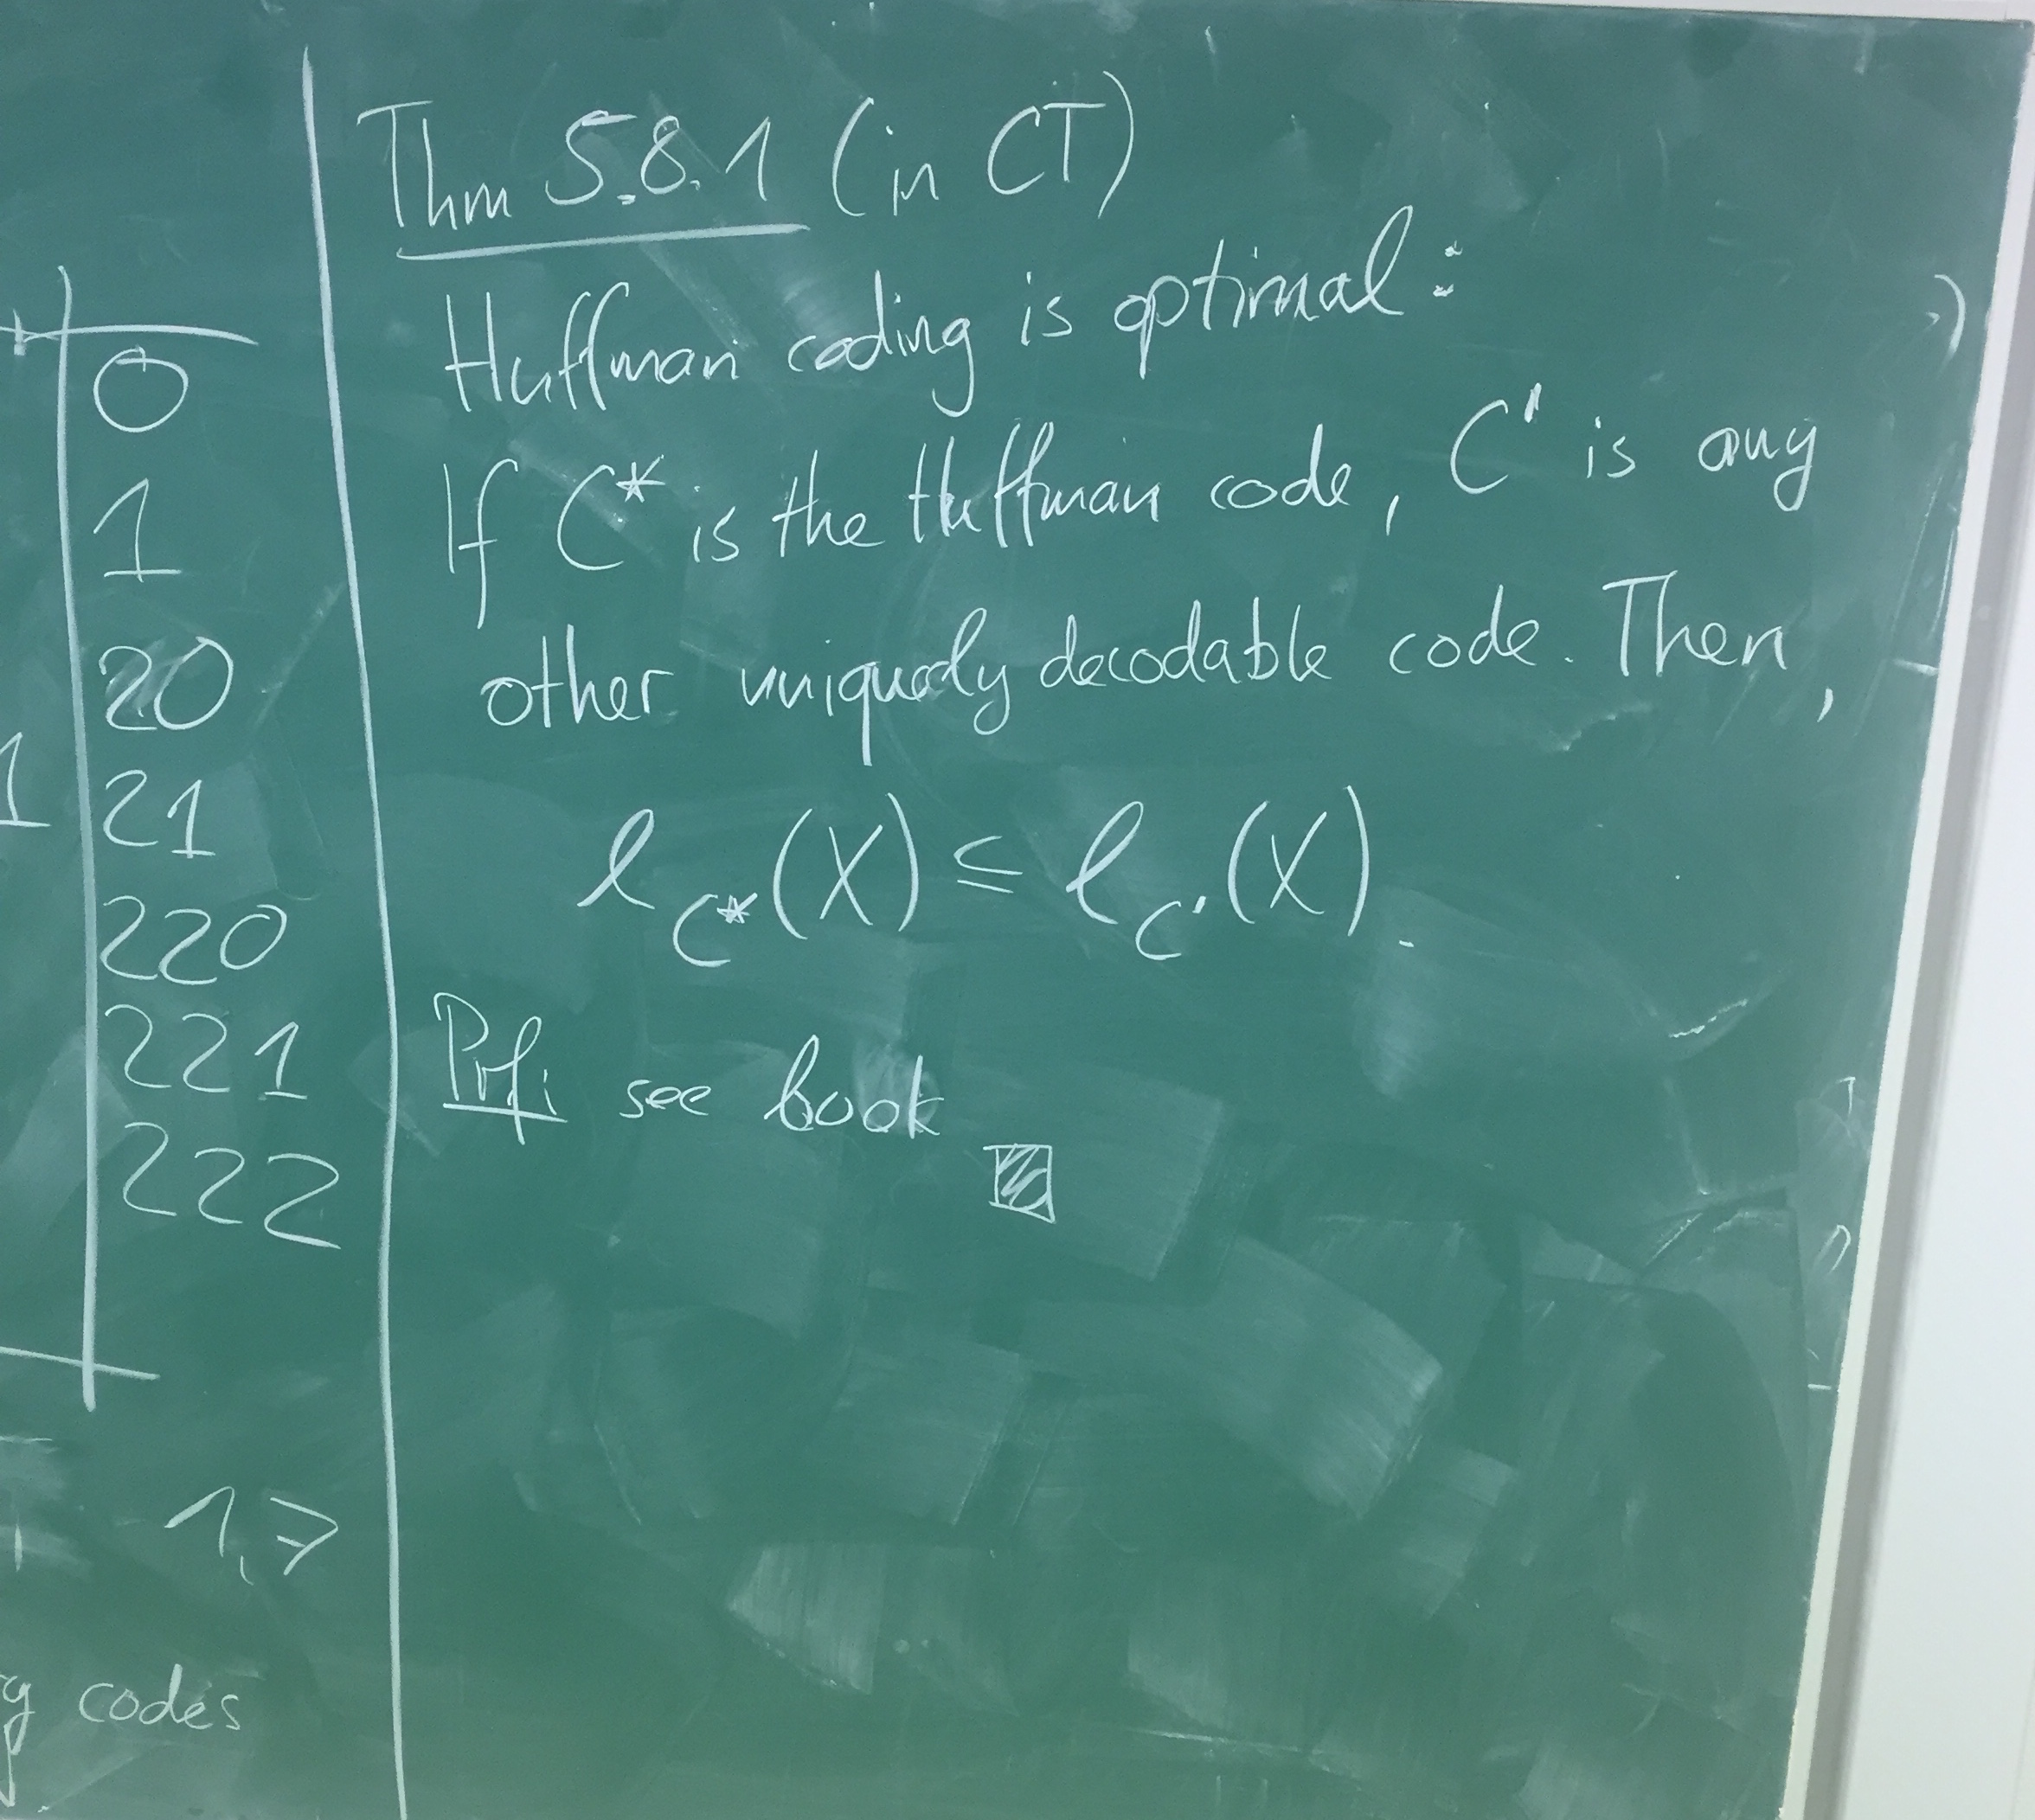 0
1
20
1 21
220
221
222
1,7
codes
Thm 5.8.1 (in CT)
Huffman coding is optimal:
If C* is the Huffman code, C' is any
other uniquely decodable code. Then,
ℓ_C*(X) ≤ ℓ_C'(X).
Prf: see book